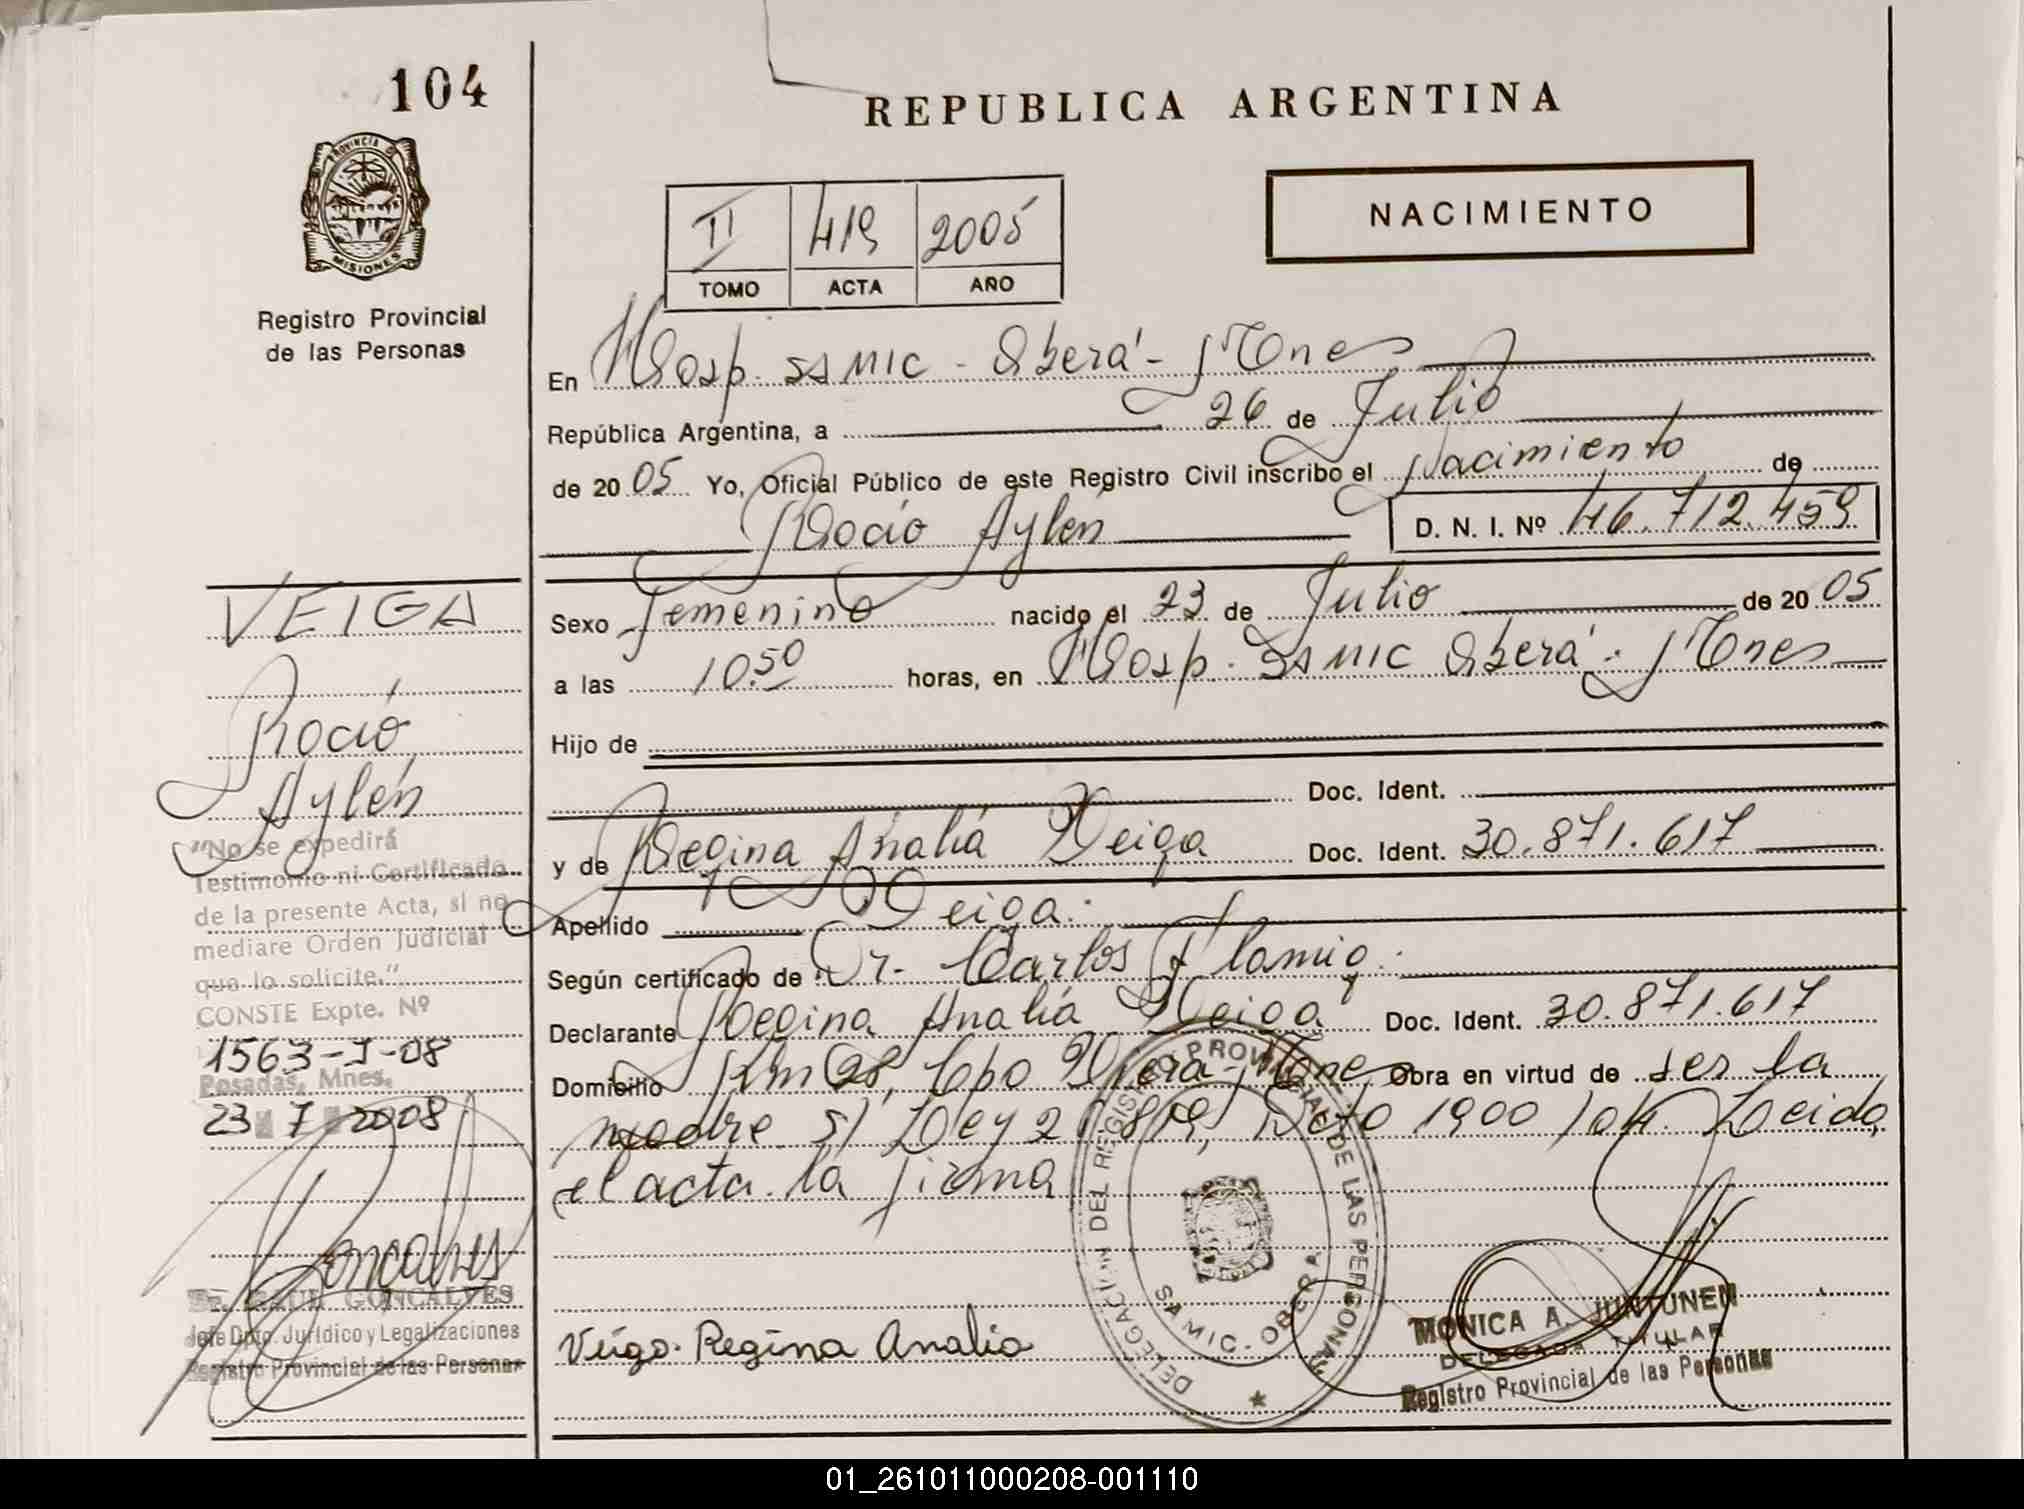 104
REPUBLICA ARGENTINA
PROVINCIA D
MISIONES
Registro Provincial
de las Personas
NACIMIENTO
II 419 2005
TOMO ACTA AÑO
En Hosp. SAMIC - Oberá - Mnes
República Argentina, a 26 de Julio
de 2005 Yo, Oficial Público de este Registro Civil inscribo el Nacimiento de
Rocío Aylén D. N. I. Nº 46.712.459
Sexo femenino nacido el 23 de Julio de 2005
a las 10.50 horas, en Hosp. SAMIC Oberá - Mnes
Hijo de
Doc. Ident.
y de Regina Analía Veiga Doc. Ident. 30.871.617
Apellido Veiga.
Según certificado de Dr. Carlos
Declarante Regina Analía Veiga Doc. Ident. 30.871.617
Domicilio Km 28, Cpo Viera - Mnes Obra en virtud de ser la
madre s/ Ley 2 819, Dcto 1900/04. Leída
el acta. la firma
VEIGA
Rocío
Aylén
"No se expedirá
Testimonio ni Certificado
de la presente Acta, si no
mediare Orden Judicial
que lo solicite."
CONSTE Expte. Nº
1563-J-08
Posadas, Mnes.
23 7 2008
Goncalves
Dr. RAUL GONCALVES
Jefe Dpto. Jurídico y Legalizaciones
Registro Provincial de las Personas
Veiga Regina Analia
DELEGACION DEL REGISTRO PROVINCIAL DE LAS PERSONAS
SAMIC - OBERA
MONICA A. JUNTUNEN
DELEGADA TITULAR
Registro Provincial de las Personas
01_261011000208-001110